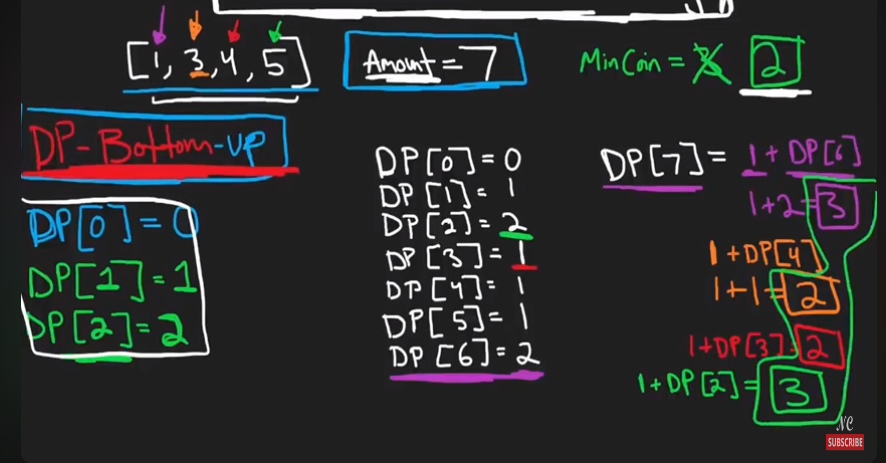 [1, 3, 4, 5]
Amount = 7
MinCoin = 3 2
DP-Bottom-UP
DP[0] = 0
DP[1] = 1
DP[2] = 2
DP[0] = 0
DP[1] = 1
DP[2] = 2
DP[3] = 1
DP[4] = 1
DP[5] = 1
DP[6] = 2
DP[7] = 1 + DP[6]
1+2=3
1+DP[4]
1+1=2
1+DP[3]=2
1+DP[2]=3
NC
SUBSCRIBE